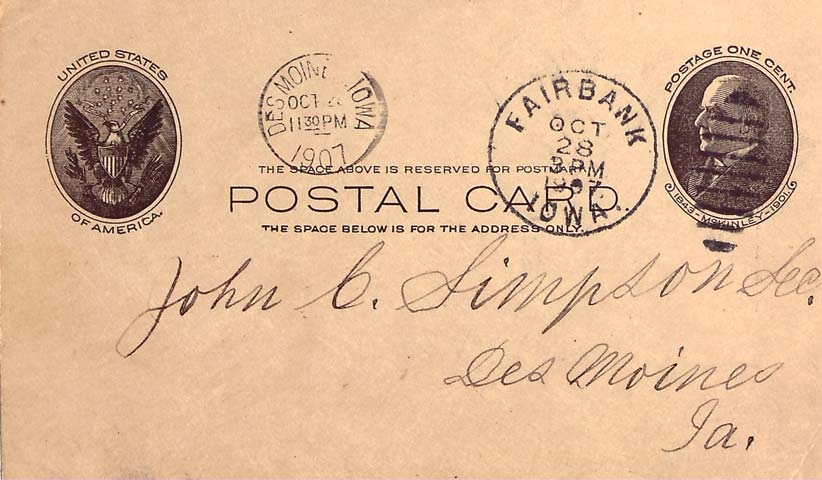 UNITED STATES
OF AMERICA.
DES MOINES IOWA
OCT 28
11 30 PM
1907
FAIRBANK
OCT
28
PM
1907
IOWA.
POSTAGE ONE CENT.
1843-McKINLEY-1901.
THE SPACE ABOVE IS RESERVED FOR POSTMARK
POSTAL CARD.
THE SPACE BELOW IS FOR THE ADDRESS ONLY.
John C. Simpson Sec.
Des Moines
Ia.